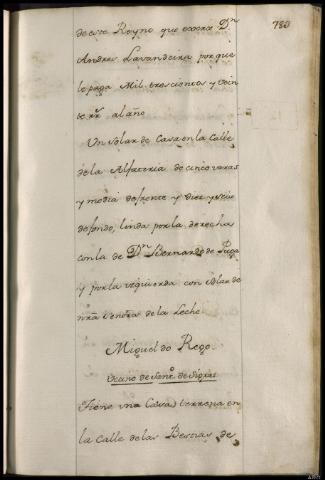 780
de este Reyno que exerce Dn
Andres Lavandeira por que
le paga Mil trescientos y vein
te rr al año
Un solar de Casa en la Calle
de la Alfareria de cinco varas
y media de frente y diez y seis
de fondo, linda por la derecha
con la de Dn Bernardo de Puga
y por la izquierda con solar de
nrã Señora de la Leche
Miguel do Rego
vecino de Sanr de Sigras
Tiene una Casa terrena en
la Calle de las Bestias de